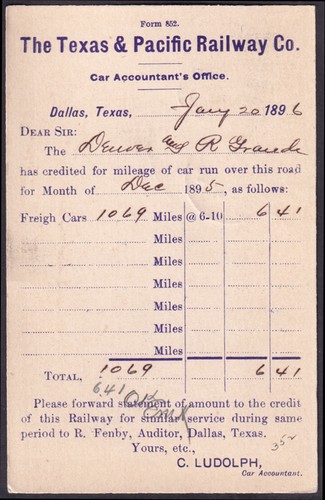 Form 852.
The Texas & Pacific Railway Co.
Car Accountant's Office.
Dallas, Texas, Jany 20 1896
DEAR SIR:
The Denver and R Grande
has credited for mileage of car run over this road
for Month of Dec 1895, as follows:
Freigh Cars 1069 Miles @ 6-10 6 41
Miles
Miles
Miles
Miles
Miles
Miles
TOTAL, 1069 6 41
6.41 OK
Please forward statement of amount to the credit
of this Railway for similar service during same
period to R. Fenby, Auditor, Dallas, Texas.
Yours, etc.,
352
C. LUDOLPH,
Car Accountant.